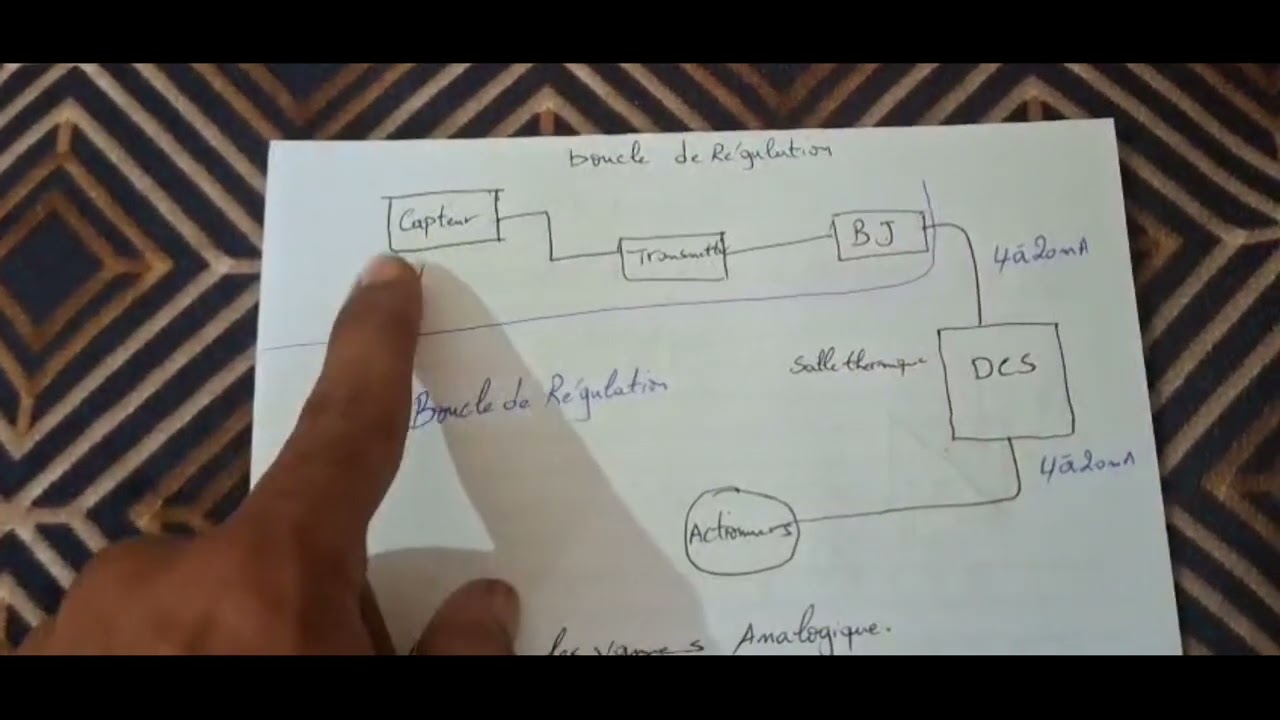 boucle de Régulution
Capteur
Transmetter
BJ
4 à 20 mA
Salle thermique
DCS
Boucle de Régulation
4 à 20 mA
Actionneurs
les vannes Analogique.